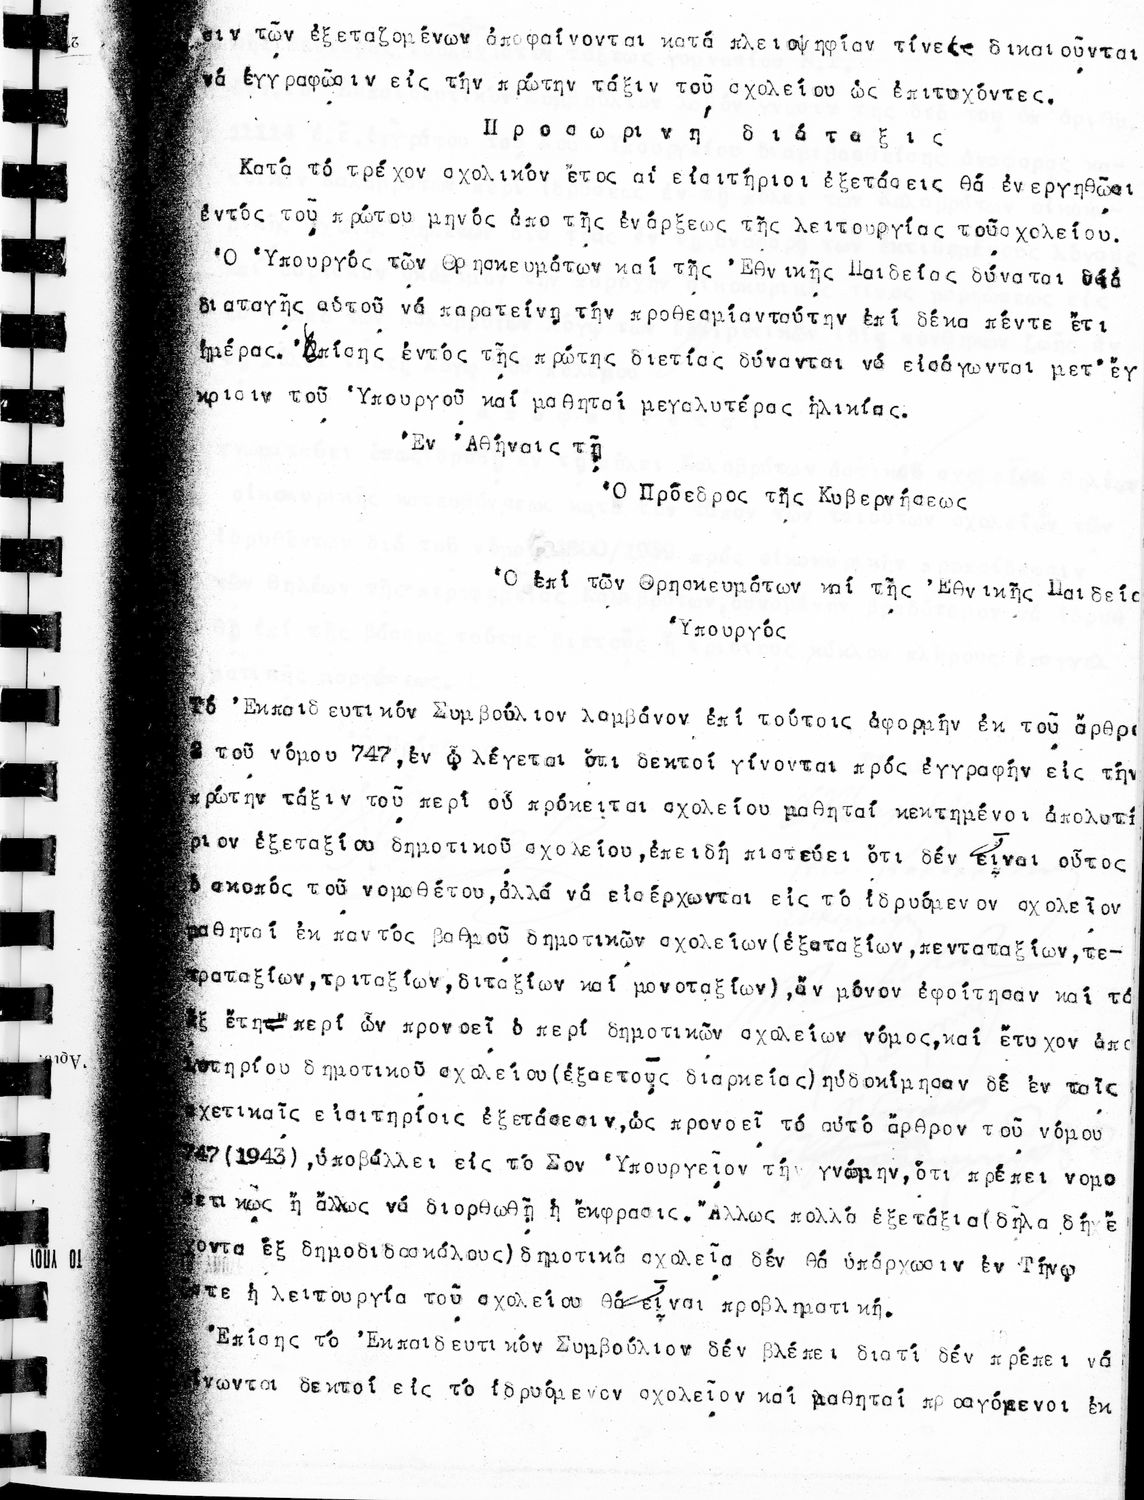 σιν τῶν ἐξεταζομένων ἀποφαίνονται κατά πλειοψηφίαν τίνες δικαιοῦνται
νά ἐγγραφῶσιν εἰς τήν πρώτην τάξιν τοῦ σχολείου ὡς ἐπιτυχόντες.
Προσωρινή διάταξις
Κατά τό τρέχον σχολικόν ἔτος αἱ εἰσιτήριοι ἐξετάσεις θά ἐνεργηθῶσι
ἐντός τοῦ πρώτου μηνός ἀπο τῆς ἐνάρξεως τῆς λειτουργίας τοῦσχολείου.
Ὁ Ὑπουργός τῶν Θρησκευμάτων καί τῆς Ἐθνικῆς Παιδείας δύναται διά
διαταγῆς αὑτοῦ νά παρατείνῃ τήν προθεσμίανταύτην ἐπί δέκα πέντε ἔτι
ἡμέρας. Ἐπίσης ἐντός τῆς πρώτης διετίας δύνανται νά εἰσάγωνται μετ' ἔγ
κρισιν τοῦ Ὑπουργοῦ καί μαθηταί μεγαλυτέρας ἡλικίας.
Ἐν Ἀθήναις τῇ
Ὁ Πρόεδρος τῆς Κυβερνήσεως
Ὁ ἐπί τῶν Θρησκευμάτων καί τῆς Ἐθνικῆς Παιδείς
Ὑπουργός
Τό Ἐκπαιδευτικόν Συμβούλιον λαμβάνον ἐπί τούτοις ἀφορμήν ἐκ τοῦ ἄρθρο
2 τοῦ νόμου 747,ἐν ᾧ λέγεται ὅτι δεκτοί γίνονται πρός ἐγγραφήν εἰς τήν
πρώτην τάξιν τοῦ περί οὗ πρόκειται σχολείου μαθηταί κεκτημένοι ἀπολυτή
ριον ἐξεταξίου δημοτικοῦ σχολείου,ἐπειδή πιστεύει ὅτι δέν εἶναι οὗτος
ὁ σκοπός τοῦ νομοθέτου,ἀλλά νά εἰσέρχωνται εἰς τό ἱδρυόμενον σχολεῖον
μαθηταί ἐκ παντός βαθμοῦ δημοτικῶν σχολείων(ἑξαταξίων,πενταταξίων,τε-
τραταξίων,τριταξίων,διταξίων καί μονοταξίων),ἄν μόνον ἐφοίτησαν καί τά
ἕξ ἔτη περί ὧν προνοεῖ ὁ περί δημοτικῶν σχολείων νόμος,καί ἔτυχον ἀπο
λυτηρίου δημοτικοῦ σχολείου(ἑξαετοῦς διαρκείας)ηὐδοκίμησαν δέ ἐν ταῖς
σχετικαῖς εἰσιτηρίοις ἐξετάσεσιν,ὡς προνοεῖ τό αὐτό ἄρθρον τοῦ νόμου
747(1943),ὑποβάλλει εἰς τό Σον Ὑπουργεῖον τήν γνώμην,ὅτι πρέπει νομο
θετικῶς ἤ ἄλλως νά διορθωθῇ ἡ ἔκφρασις. Ἄλλως πολλά ἑξετάξια(δῆλα δή ἔ
χοντα ἕξ δημοδιδασκάλους)δημοτικά σχολεῖα δέν θά ὑπάρχωσιν ἐν Τήνῳ
ὥστε ἡ λειτουργία τοῦ σχολείου θά εἶναι προβληματική.
Ἐπίσης τό Ἐκπαιδευτικόν Συμβούλιον δέν βλέπει διατί δέν πρέπει νά
γίνωνται δεκτοί εἰς τό ἱδρυόμενον σχολεῖον καί μαθηταί προαγόμενοι ἐκ